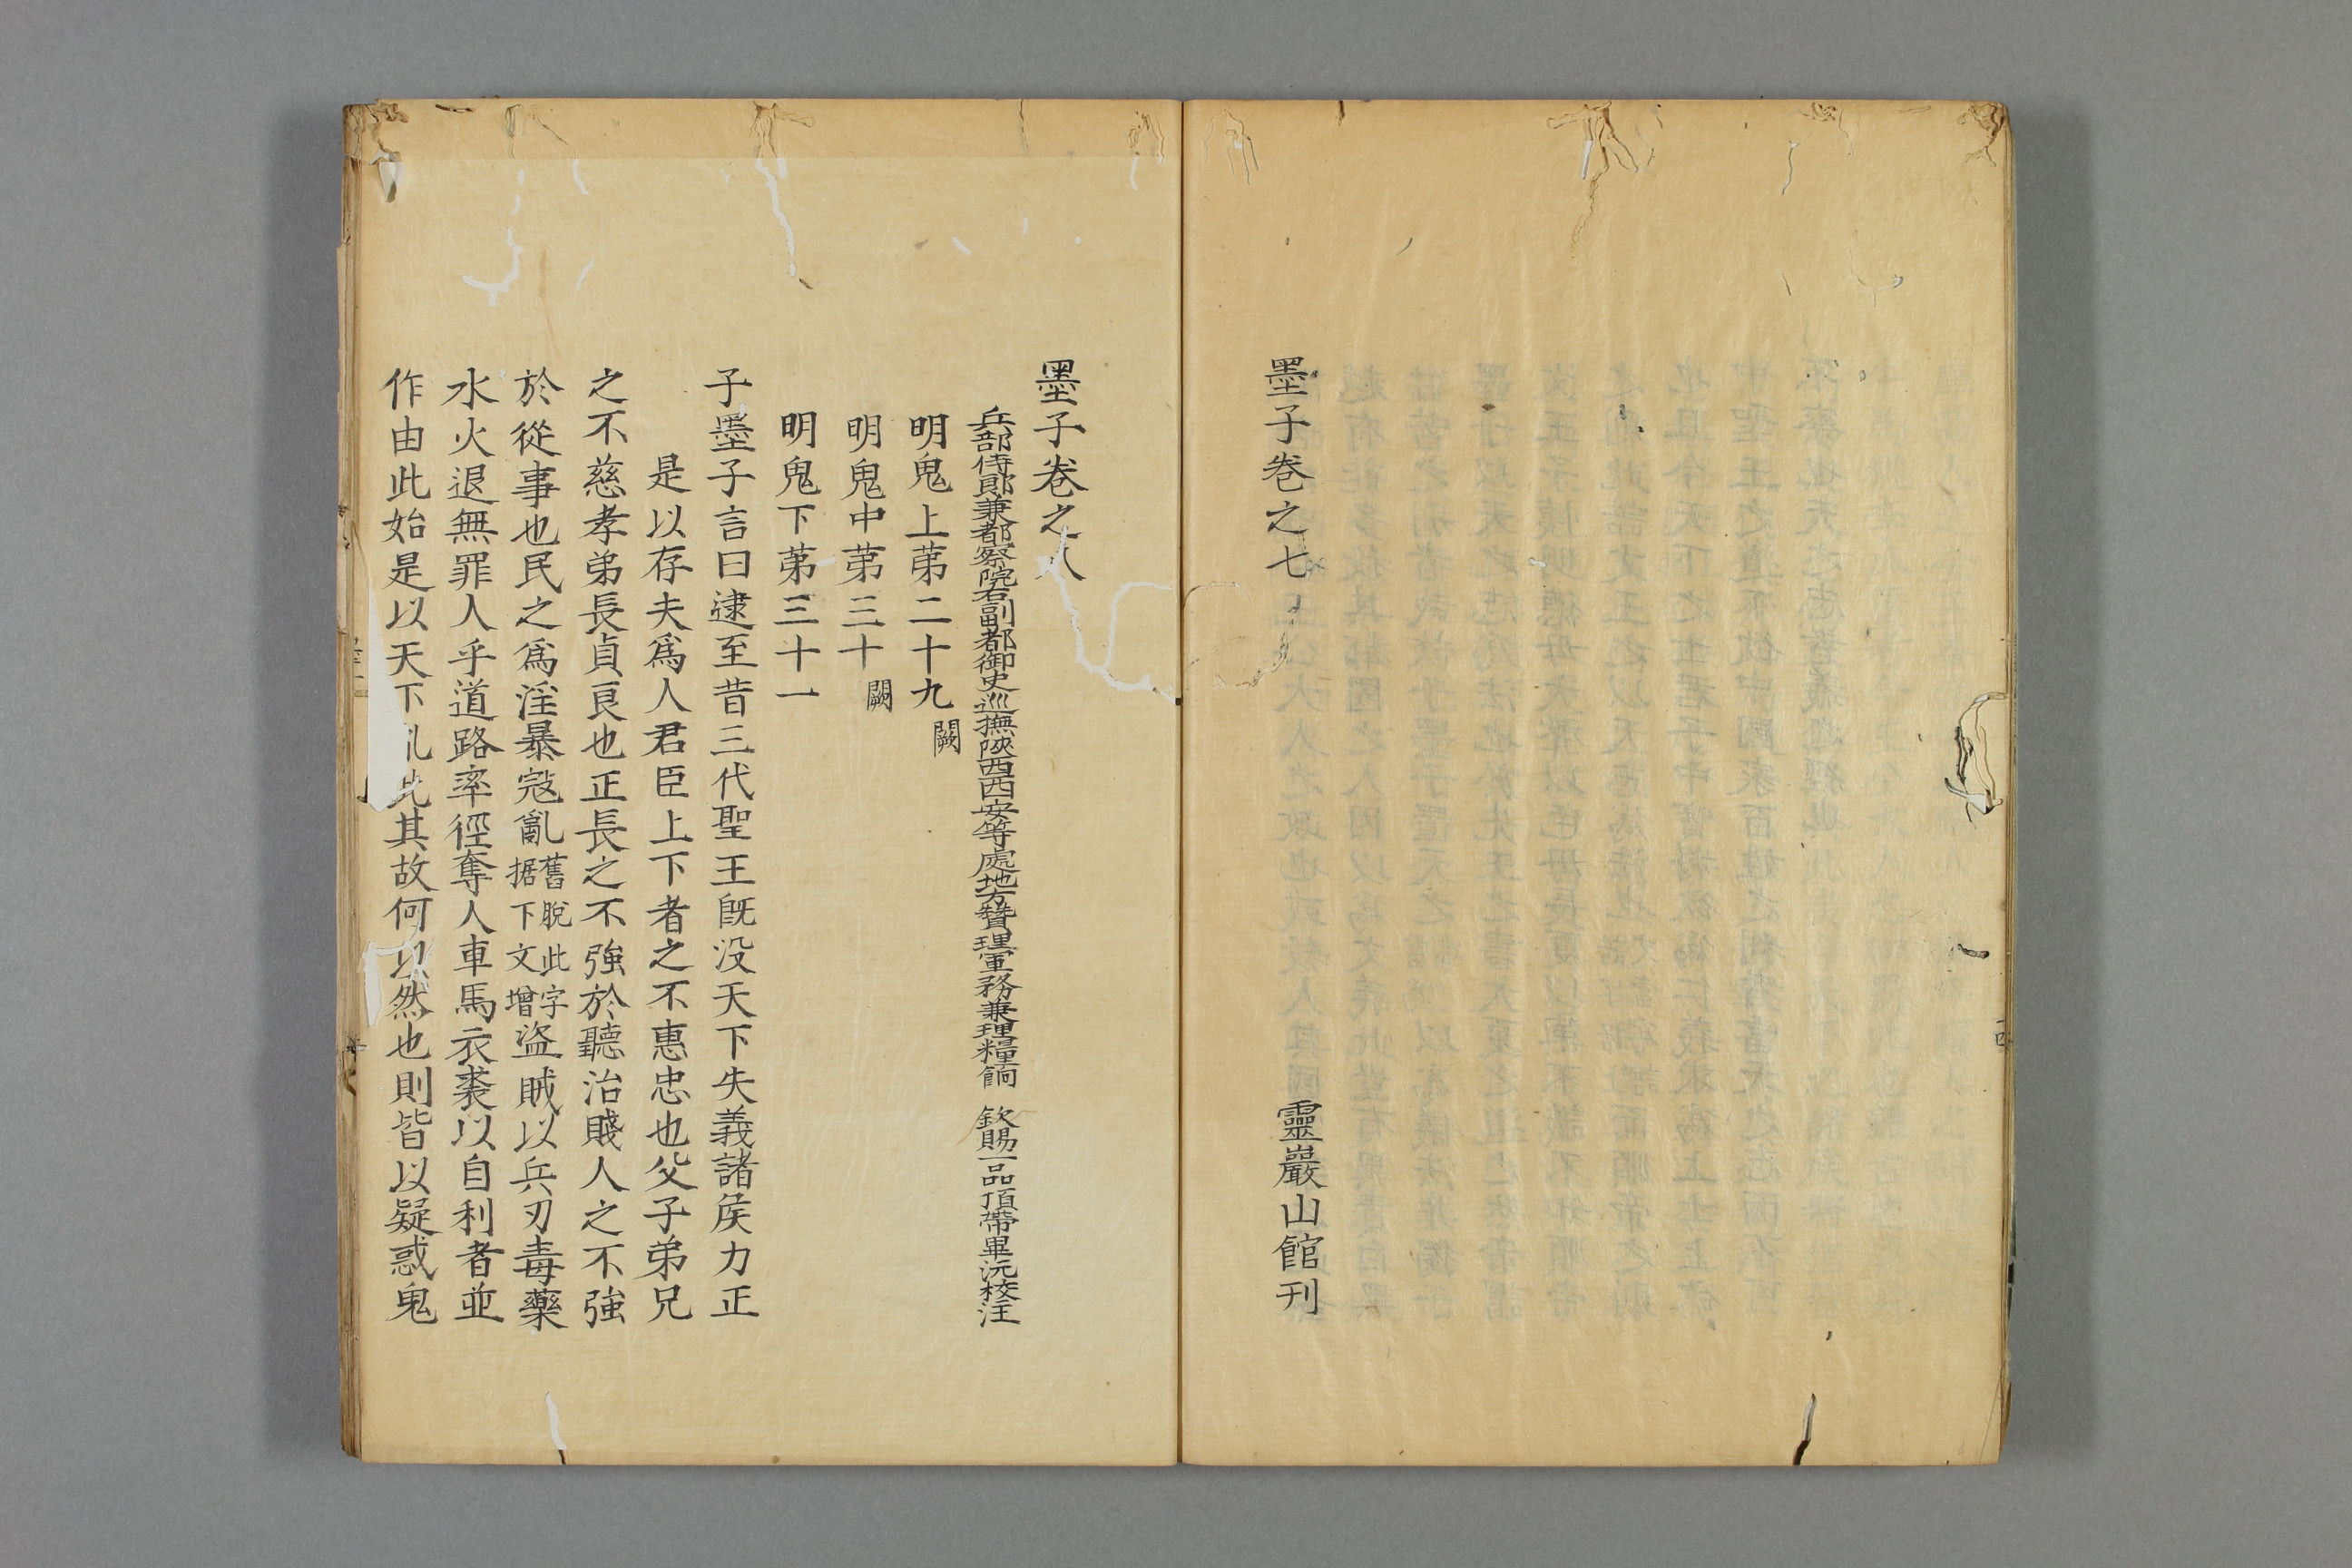 墨子卷之七
靈巖山館刊
墨子卷之八
兵部侍郎兼都察院右副都御史巡撫陝西西安等處地方贊理軍務兼理糧餉 欽賜一品頂帶畢沅校注
明鬼上苐二十九 闕
明鬼中苐三十 闕
明鬼下苐三十一
子墨子言曰逮至昔三代聖王旣没天下失義諸侯力正
是以存夫爲人君臣上下者之不惠忠也父子弟兄
之不慈孝弟長貞良也正長之不強於聽治賤人之不強
於從事也民之爲淫暴寇亂舊脫此字据下文增盜賊以兵刃毒藥
水火退無罪人乎道路率徑奪人車馬衣裘以自利者並
作由此始是以天下此其故何以然也則皆以疑惑鬼